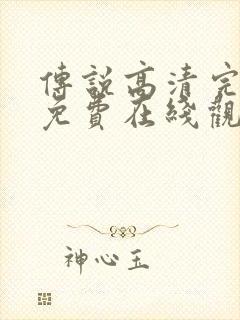 傳說高清完
免費在綫觀
神心玉